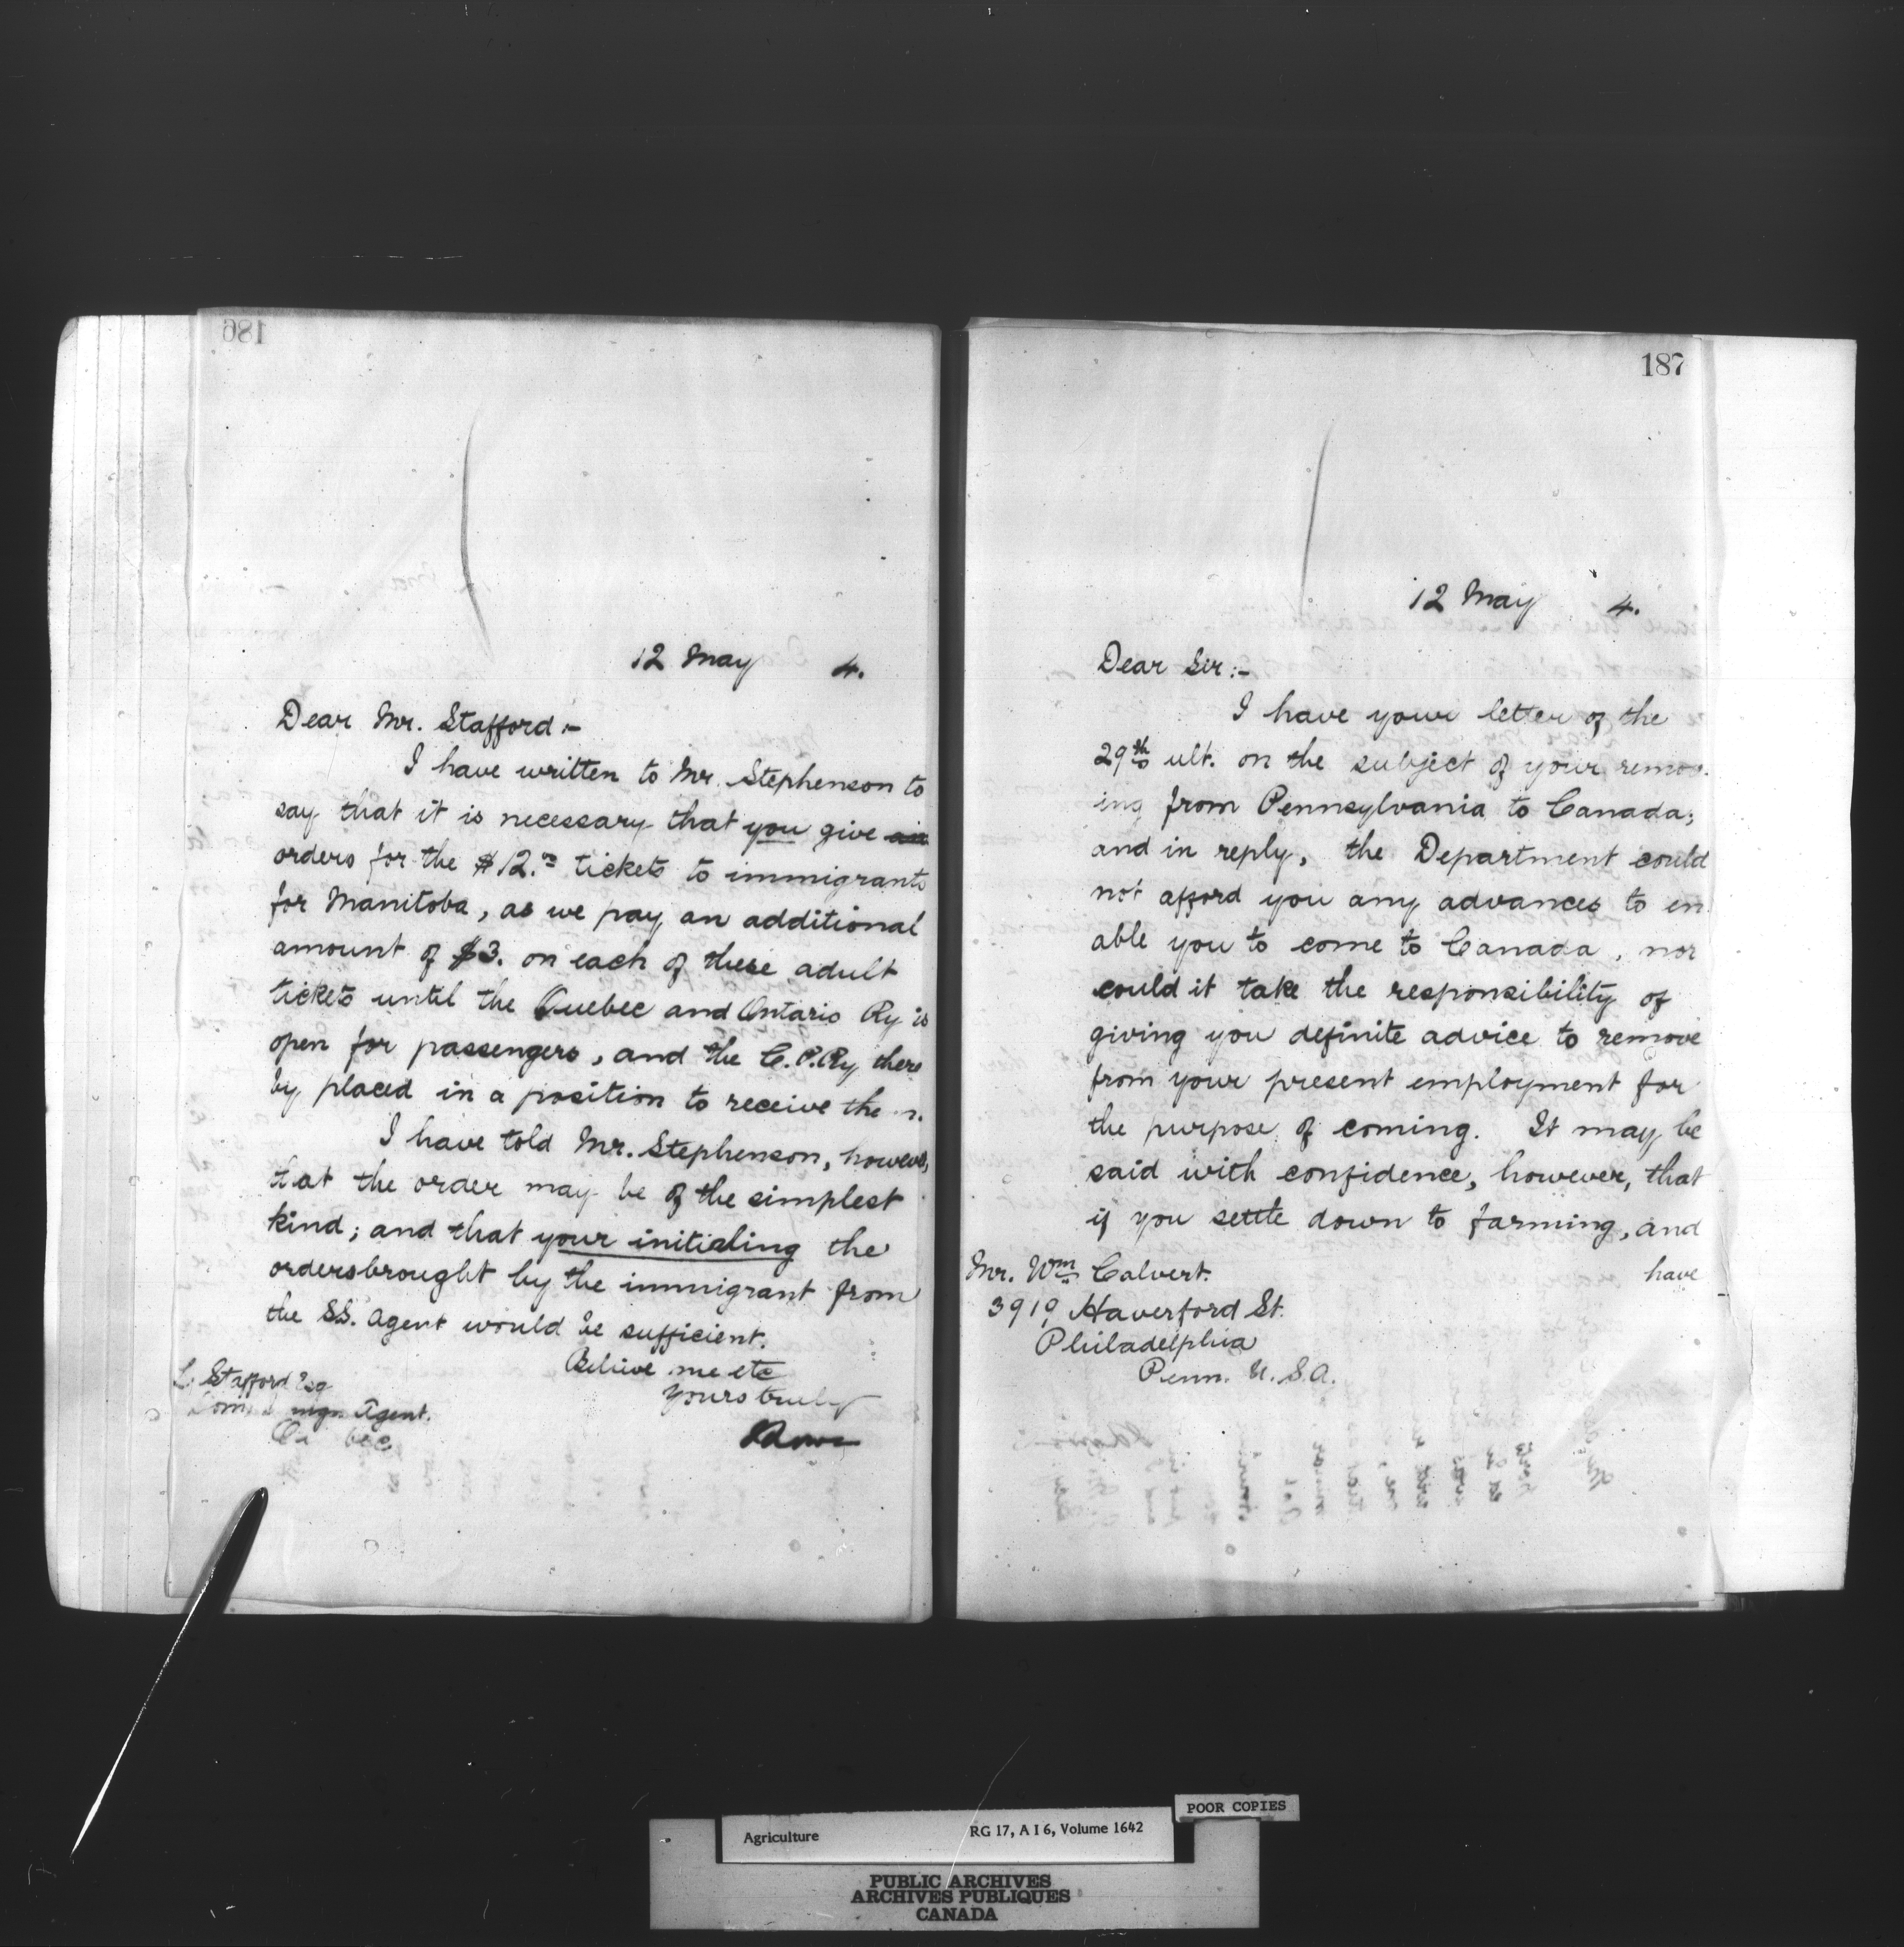 186
12 May 4.
Dear Mr. Stafford :-
I have written to Mr. Stephenson to
say that it is necessary that you give
orders for the $12.00 tickets to immigrants
for Manitoba, as we pay an additional
amount of $3. on each of these adult
tickets until the Quebec and Ontario Ry is
open for passengers, and the C.P.Ry there
by placed in a position to receive the
I have told Mr. Stephenson, however,
that the order may be of the simplest
kind; and that your initialing the
orders brought by the immigrant from
the SS. Agent would be sufficient.
Believe me etc
Yours truly
L. Stafford Esq
Agent.
187
12 May 4.
Dear Sir :-
I have your letter of the
29th ult. on the subject of your remov
ing from Pennsylvania to Canada;
and in reply, the Department could
not afford you any advances to en
able you to come to Canada, nor
could it take the responsibility of
giving you definite advice to remove
from your present employment for
the purpose of coming. It may be
said with confidence, however, that
if you settle down to farming, and
have
Mr. Wm Calvert.
3919 Haverford St.
Philadelphia
Penn. U.S.A.
POOR COPIES
Agriculture RG 17, A I 6, Volume 1642
PUBLIC ARCHIVES
ARCHIVES PUBLIQUES
CANADA